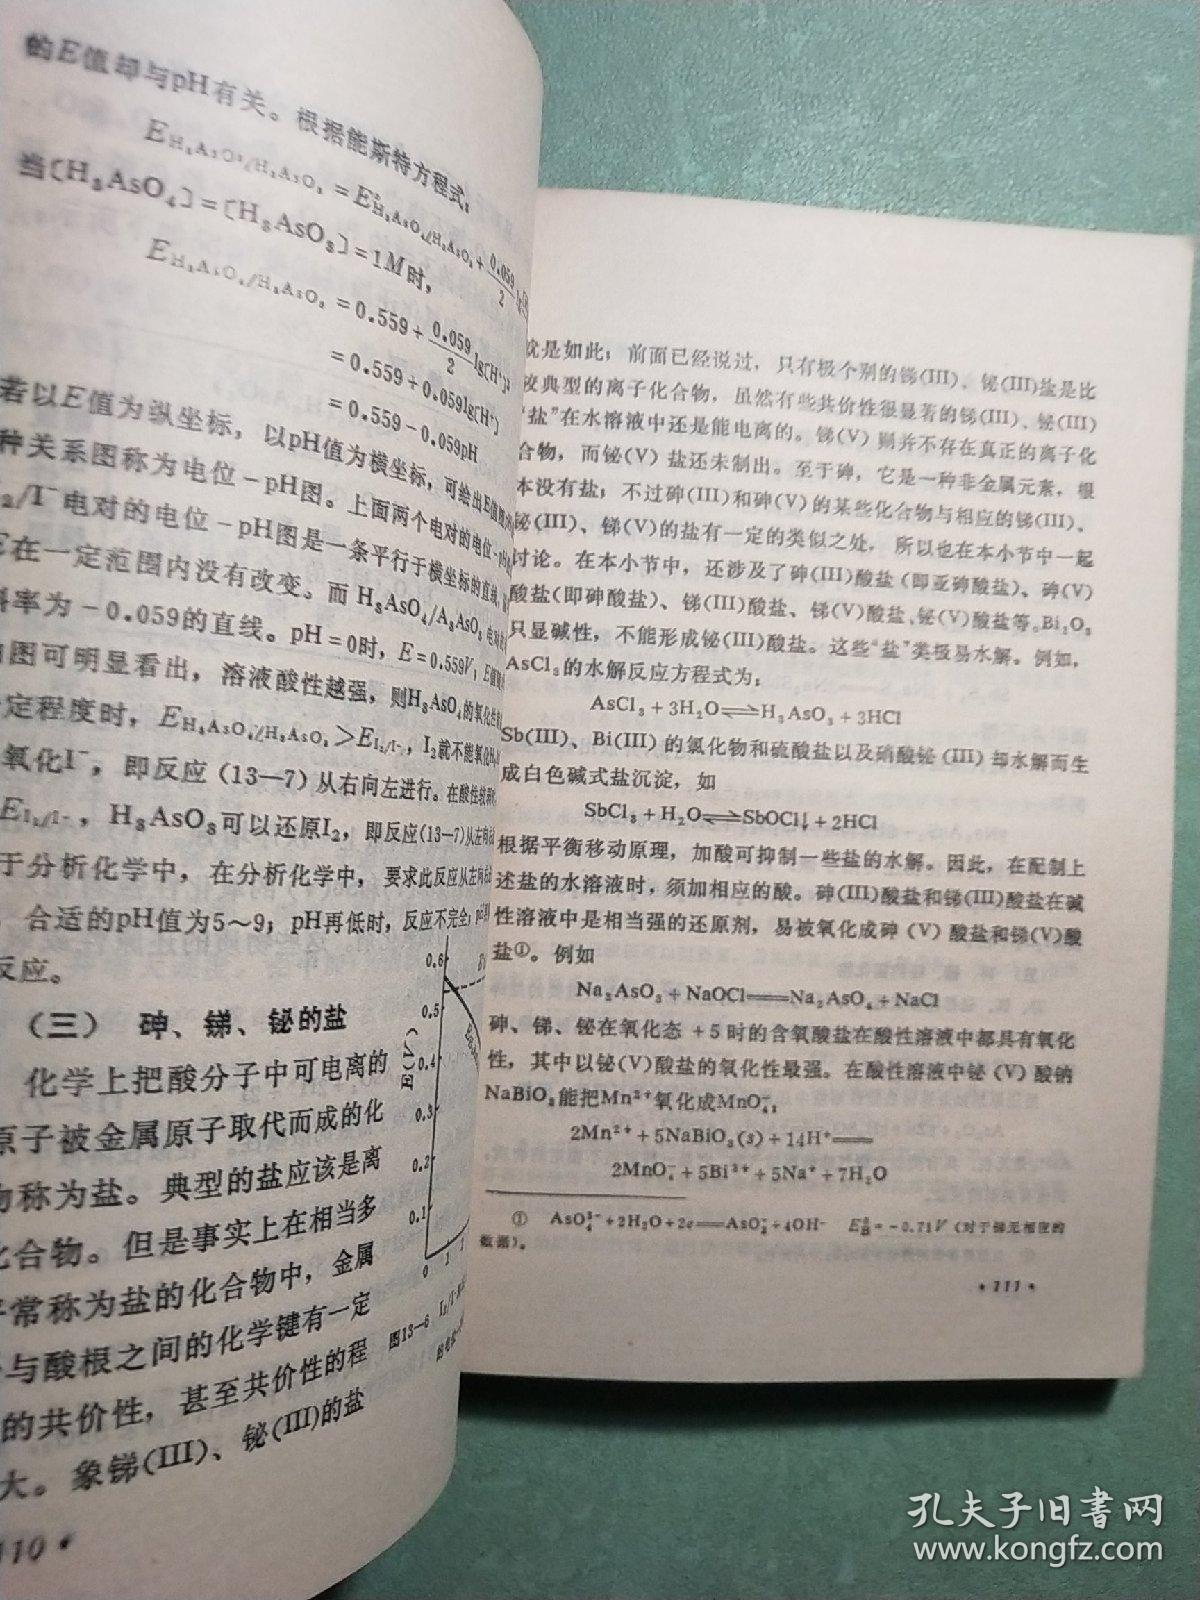 的E值却与pH有关。根据能斯特方程式：
E H₃AsO₄/H₃AsO₃ = E° H₃AsO₄/H₃AsO₃ + 0.059/2 lg
当〔H₃AsO₄〕=〔H₃AsO₃〕=1M时，
E H₃AsO₄/H₃AsO₃ = 0.559 + 0.059/2 lg〔H⁺〕²
= 0.559 + 0.059lg〔H⁺〕
= 0.559 - 0.059pH
若以E值为纵坐标，以pH值为横坐标，可绘出E值
种关系图称为电位-pH图。上面两个电对的电位-
I₂/I⁻电对的电位-pH图是一条平行于横坐标的直线，
E在一定范围内没有改变。而 H₃AsO₄/A₃AsO₃ 电对
斜率为-0.059的直线。pH=0时，E=0.559V；E值
图可明显看出，溶液酸性越强，则H₃AsO₄的氧化性
定程度时，E H₃AsO₄/H₃AsO₃ > E I₂/I⁻，I₂就不能氧化
氧化I⁻，即反应（13—7）从右向左进行。在酸性较
E I₂/I⁻，H₃AsO₃可以还原I₂，即反应(13—7)从左向
于分析化学中，在分析化学中，要求此反应从左向
合适的pH值为5～9；pH再低时，反应不完全；
反应。
（三） 砷、锑、铋的盐
化学上把酸分子中可电离的
原子被金属原子取代而成的化
物称为盐。典型的盐应该是离
化合物。但是事实上在相当多
常称为盐的化合物中，金属
与酸根之间的化学键有一定
的共价性，甚至共价性的程
大。象锑(III)、铋(III)的盐
110 •
E(V)
0.6
0.5
0.4
0.3
0.2
0.1
0 1
图13—6 I₂/I⁻
就是如此；前面已经说过，只有极个别的锑(III)、铋(III)盐是比
较典型的离子化合物，虽然有些共价性很显著的锑(III)、铋(III)
“盐”在水溶液中还是能电离的。锑(V) 则并不存在真正的离子化
合物，而铋(V) 盐还未制出。至于砷，它是一种非金属元素，根
本没有盐；不过砷(III)和砷(V)的某些化合物与相应的锑(III)、
铋(III)、锑(V)的盐有一定的类似之处，所以也在本小节中一起
讨论。在本小节中，还涉及了砷(III)酸盐（即亚砷酸盐）、砷(V)
酸盐(即砷酸盐)、锑(III)酸盐、锑(V)酸盐、铋(V)酸盐等。Bi₂O₃
只显碱性，不能形成铋(III)酸盐。这些“盐”类极易水解。例如，
AsCl₃的水解反应方程式为：
AsCl₃ + 3H₂O⇌H₃AsO₃ + 3HCl
Sb(III)、Bi(III) 的氯化物和硫酸盐以及硝酸铋 (III) 却水解而生
成白色碱式盐沉淀，如
SbCl₃ + H₂O⇌SbOCl↓ + 2HCl
根据平衡移动原理，加酸可抑制一些盐的水解。因此，在配制上
述盐的水溶液时，须加相应的酸。砷(III)酸盐和锑(III)酸盐在碱
性溶液中是相当强的还原剂，易被氧化成砷 (V) 酸盐和锑(V)酸
盐①。例如
Na₃AsO₃ + NaOCl══Na₃AsO₄ + NaCl
砷、锑、铋在氧化态 +5 时的含氧酸盐在酸性溶液中都具有氧化
性，其中以铋(V)酸盐的氧化性最强。在酸性溶液中铋 (V) 酸钠
NaBiO₃能把Mn²⁺氧化成MnO₄⁻：
2Mn²⁺ + 5NaBiO₃(s) + 14H⁺══
2MnO₄⁻ + 5Bi³⁺ + 5Na⁺ + 7H₂O
① AsO₄³⁻+2H₂O+2e══AsO₂⁻+4OH⁻ E°B=-0.71V (对于锑无相应的
数据)。
• 111 •
孔夫子旧书网
www.kongfz.com